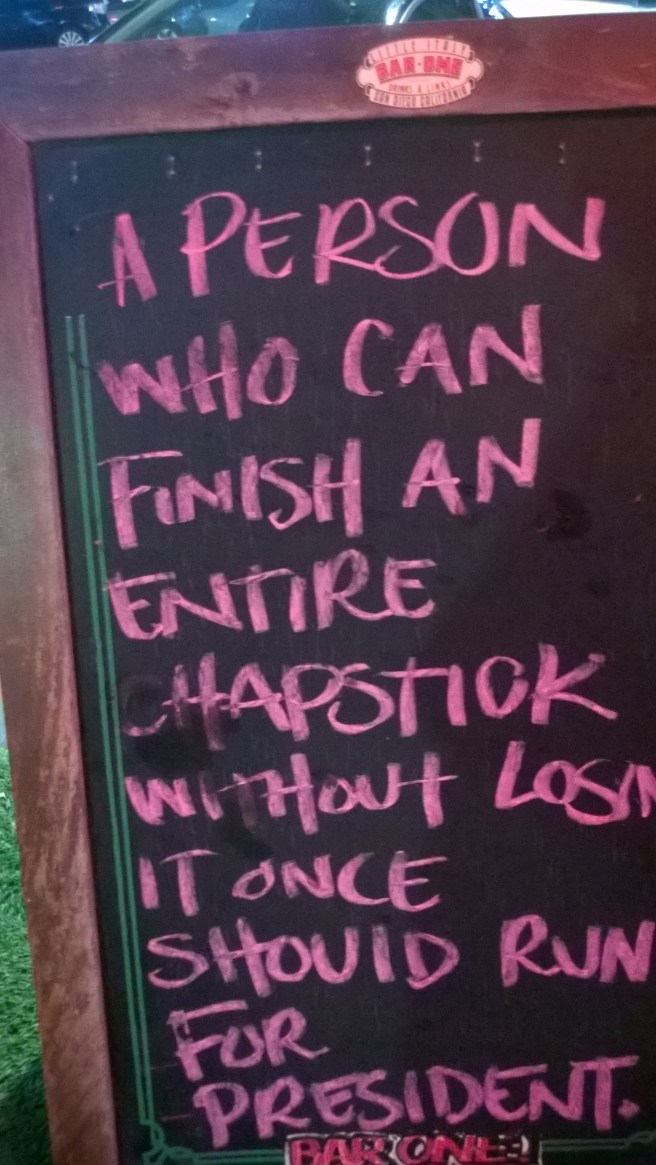 LITTLE ITALY
BAR·ONE
DRINKS & LINKS
SAN DIEGO CALIFORNIA
A PERSON
WHO CAN
FINISH AN
ENTIRE
CHAPSTICK
WITHOUT LOSIN
IT ONCE
SHOULD RUN
FOR
PRESIDENT.
BAR ONE!